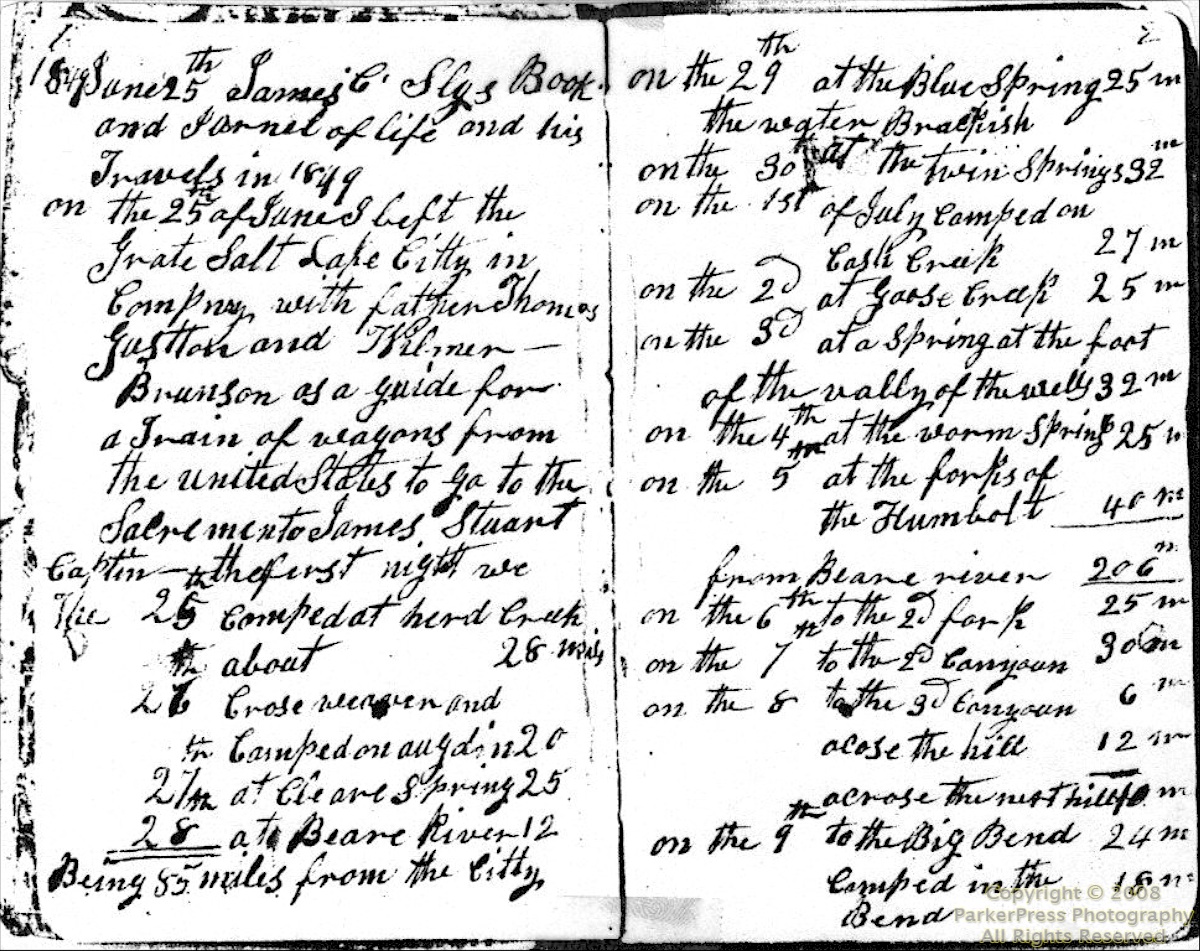 1
1849 June 25th James C Slys Book
and Jornel of life and his
Travels in 1849
on the 25th of June I left the
Grate Salt Lake Citty in
Compny with father Thomas
and Wilmer —
Brunson as a guide for
a Train of wagons from
the united States to go to the
Sacremento James Stuart
Captin — the first night we
The 25th Camped at herd Creek
about 28 mils
26th Crose weaver and
Camped on augdin 20
27th at Cleare Spring 25
28th at Beare River 12
Being 85 miles from the Citty
2
on the 29th at the Blue Spring 25 m
the water Brackish
on the 30th at the twin Springs 32 m
on the 1st of July Camped on
Cash Creek 27 m
on the 2d at Goose Creek 25 m
on the 3d at a Spring at the foot
of the vally of the wells 32 m
on the 4th at the worm Spring 25 m
on the 5th at the forks of
the Humbolt 40 m
from Beare river 206 m
on the 6th to the 2d fork 25 m
on the 7th to the 2d Canyoun 30 m
on the 8 to the 3d Canyoun 6 m
acose the hill 12 m
acrose the nest hill m
on the 9th to the Big Bend 24 m
Camped in the 18 m
Bend
Copyright © 2008
ParkerPress Photography
All Rights Reserved